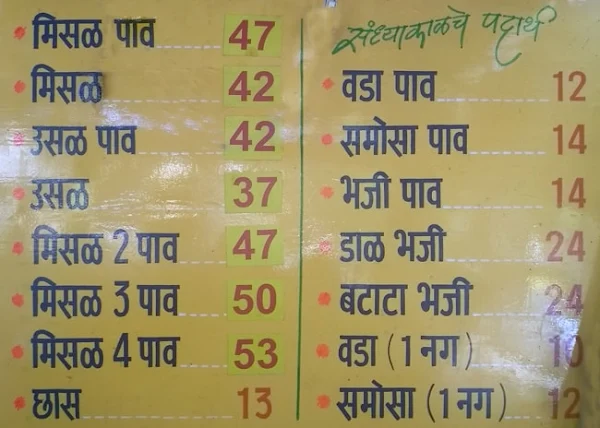 मिसळ पाव 47
मिसळ 42
उसळ पाव 42
उसळ 37
मिसळ 2 पाव 47
मिसळ 3 पाव 50
मिसळ 4 पाव 53
छास 13
संध्याकाळचे पदार्थ
वडा पाव 12
समोसा पाव 14
भजी पाव 14
डाळ भजी 24
बटाटा भजी 24
वडा (1 नग) 10
समोसा (1 नग) 12